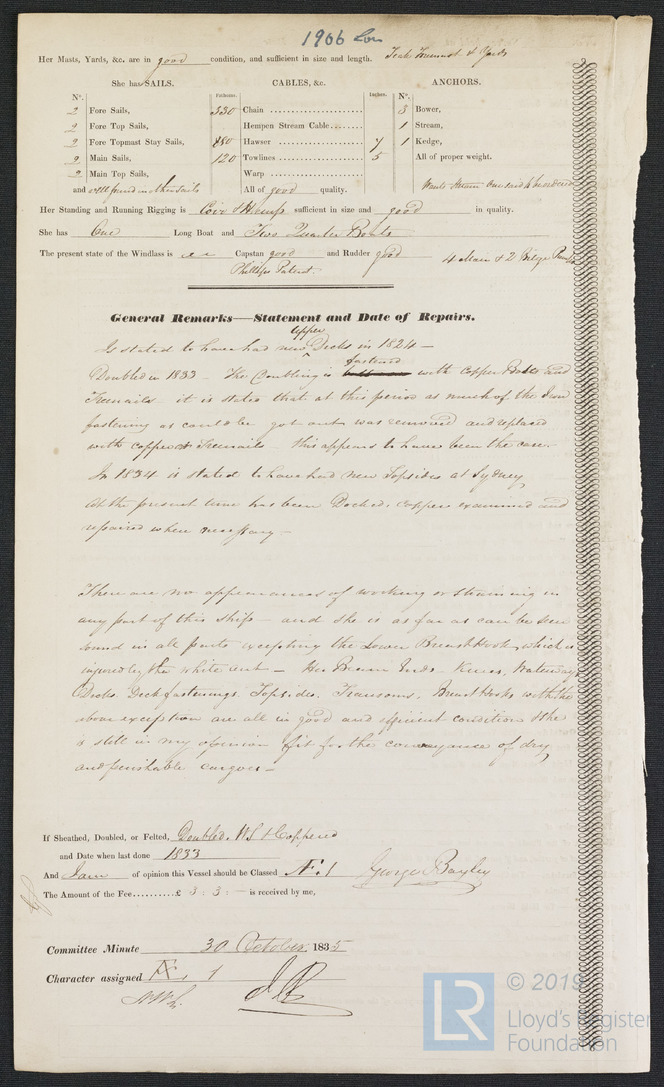 1906 Lon
Her Masts, Yards, &c. are in good condition, and sufficient in size and length. Teak Foremast & Yards
She has SAILS. CABLES, &c. ANCHORS.
N°. Fathoms. Inches. N°.
2 Fore Sails, 330 Chain 3 Bower,
2 Fore Top Sails, Hempen Stream Cable 1 Stream,
2 Fore Topmast Stay Sails, 880 Hawser 7 1 Kedge,
2 Main Sails, 120 Towlines 5 All of proper weight.
2 Main Top Sails, Warp
and well found in other sails All of good quality. Wants Stream One said to be ordered
Her Standing and Running Rigging is Coir & Hemp sufficient in size and good in quality.
She has One Long Boat and Two Quarter Boats
The present state of the Windlass is Capstan good and Rudder good 4 Main & 2 Bilge Pumps
Phillips Patent.
General Remarks—Statement and Date of Repairs.
Is stated to have had new upper Decks in 1824 —
Doubled in 1833 — The Doubling is fastened with Copper Bolts and
Treenails it is stated that at this period as much of the Iron
fastening as could be got out was removed and replaced
with copper & Treenails this appears to have been the case.
In 1834 is stated to have had new Topsides at Sydney
At the present time has been Docked, copper examined and
repaired where necessary —
There are no appearances of working or straining in
any part of this Ship — and she is as far as can be seen
sound in all parts excepting the Lower Breast Hook, which is
injured by the white ant — Her Beam Ends Knees, Waterways
Decks, Deck fastenings, Topsides, Transoms, Breast Hooks with the
above exception are all in good and efficient condition & she
is still in my opinion fit for the conveyance of dry
and perishable cargoes —
If Sheathed, Doubled, or Felted, Doubled. W.S & Coppered
and Date when last done 1833
And I am of opinion this Vessel should be Classed Æ 1 George Bayley
The Amount of the Fee..........£ 3 : 3 : — is received by me,
Committee Minute 30 October 1835
Character assigned Æ 1
© 2019
LR
Lloyd's Register
Foundation